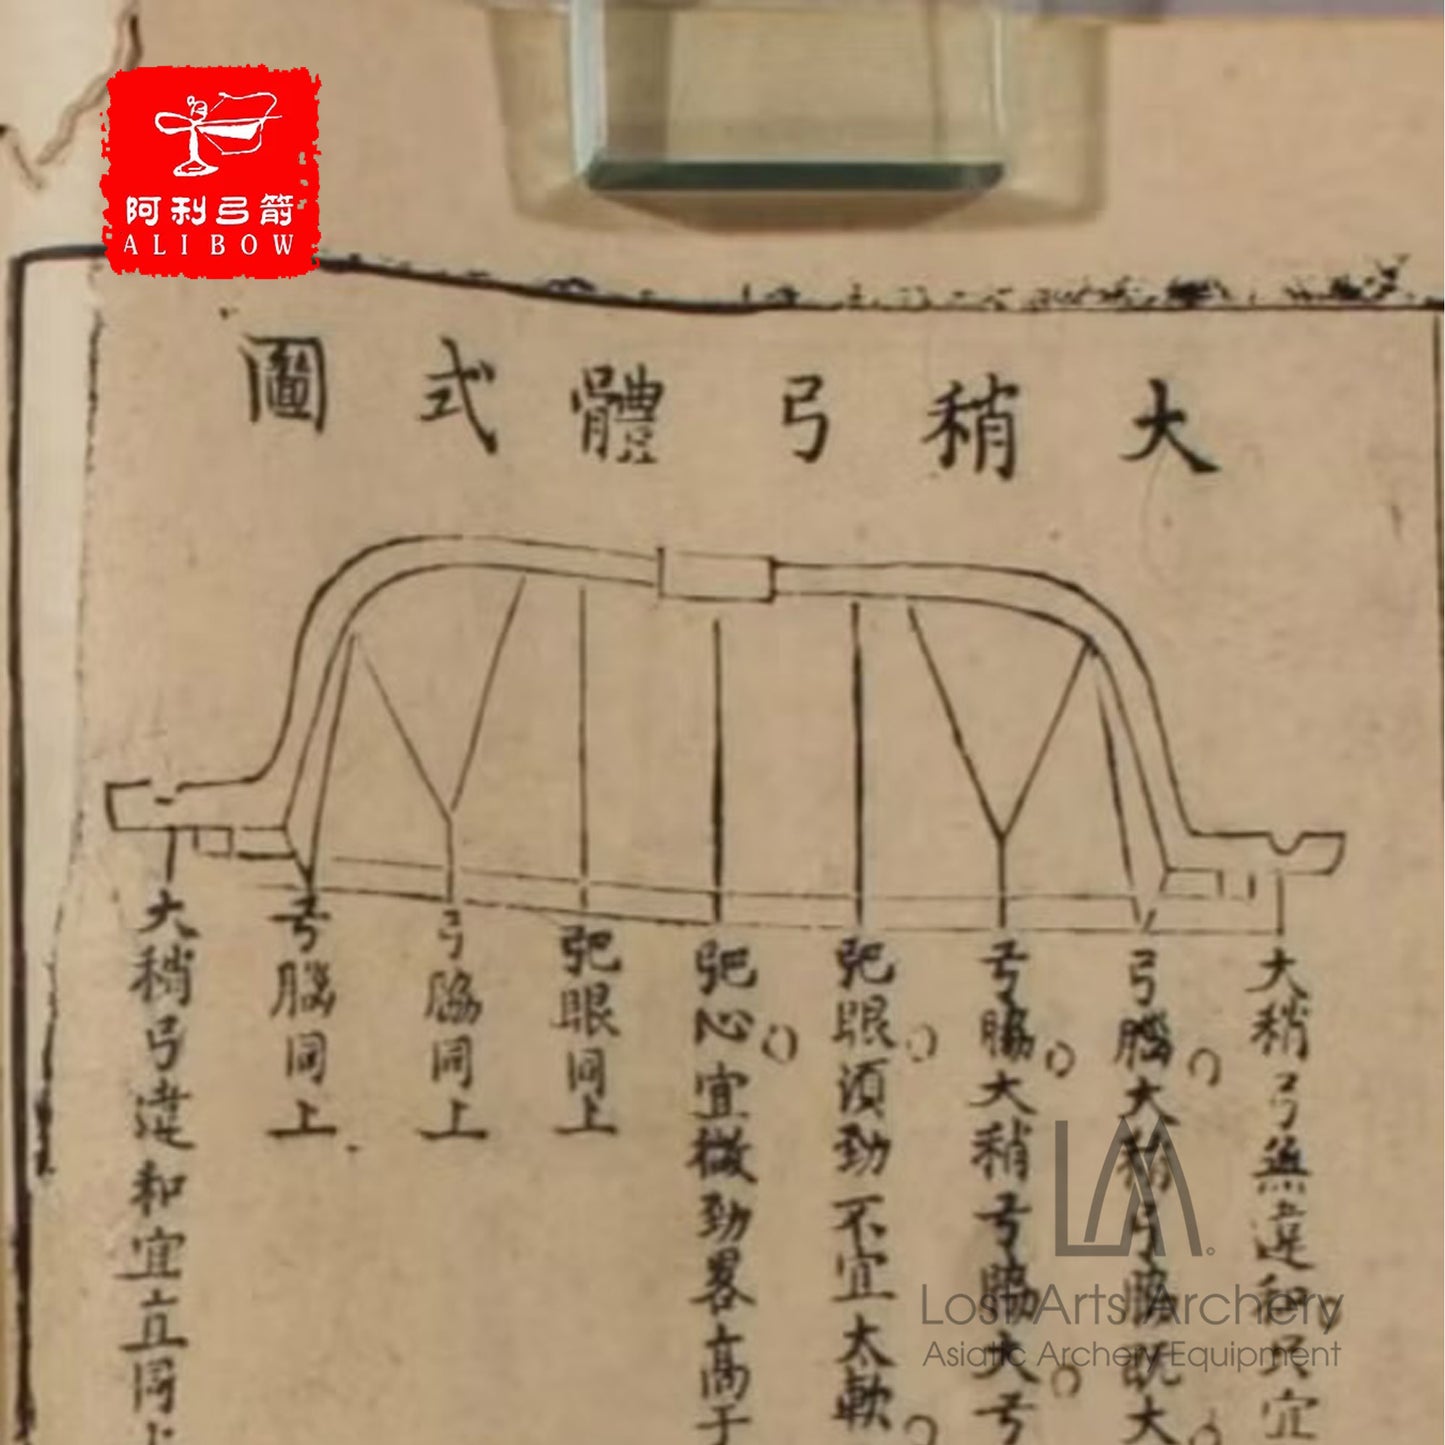 阿利弓箭
ALIBOW
大稍弓體式圖
大稍弓無違和只宜
弓腦大稍弓腦既大
弓脇大稍弓脇大弓
弝眼須勁不宜太軟
弝心宜微勁畧高于
弝眼同上
弓脇同上
弓腦同上
大稍弓違和宜立同上
LAA
Lost Arts Archery
Asiatic Archery Equipment